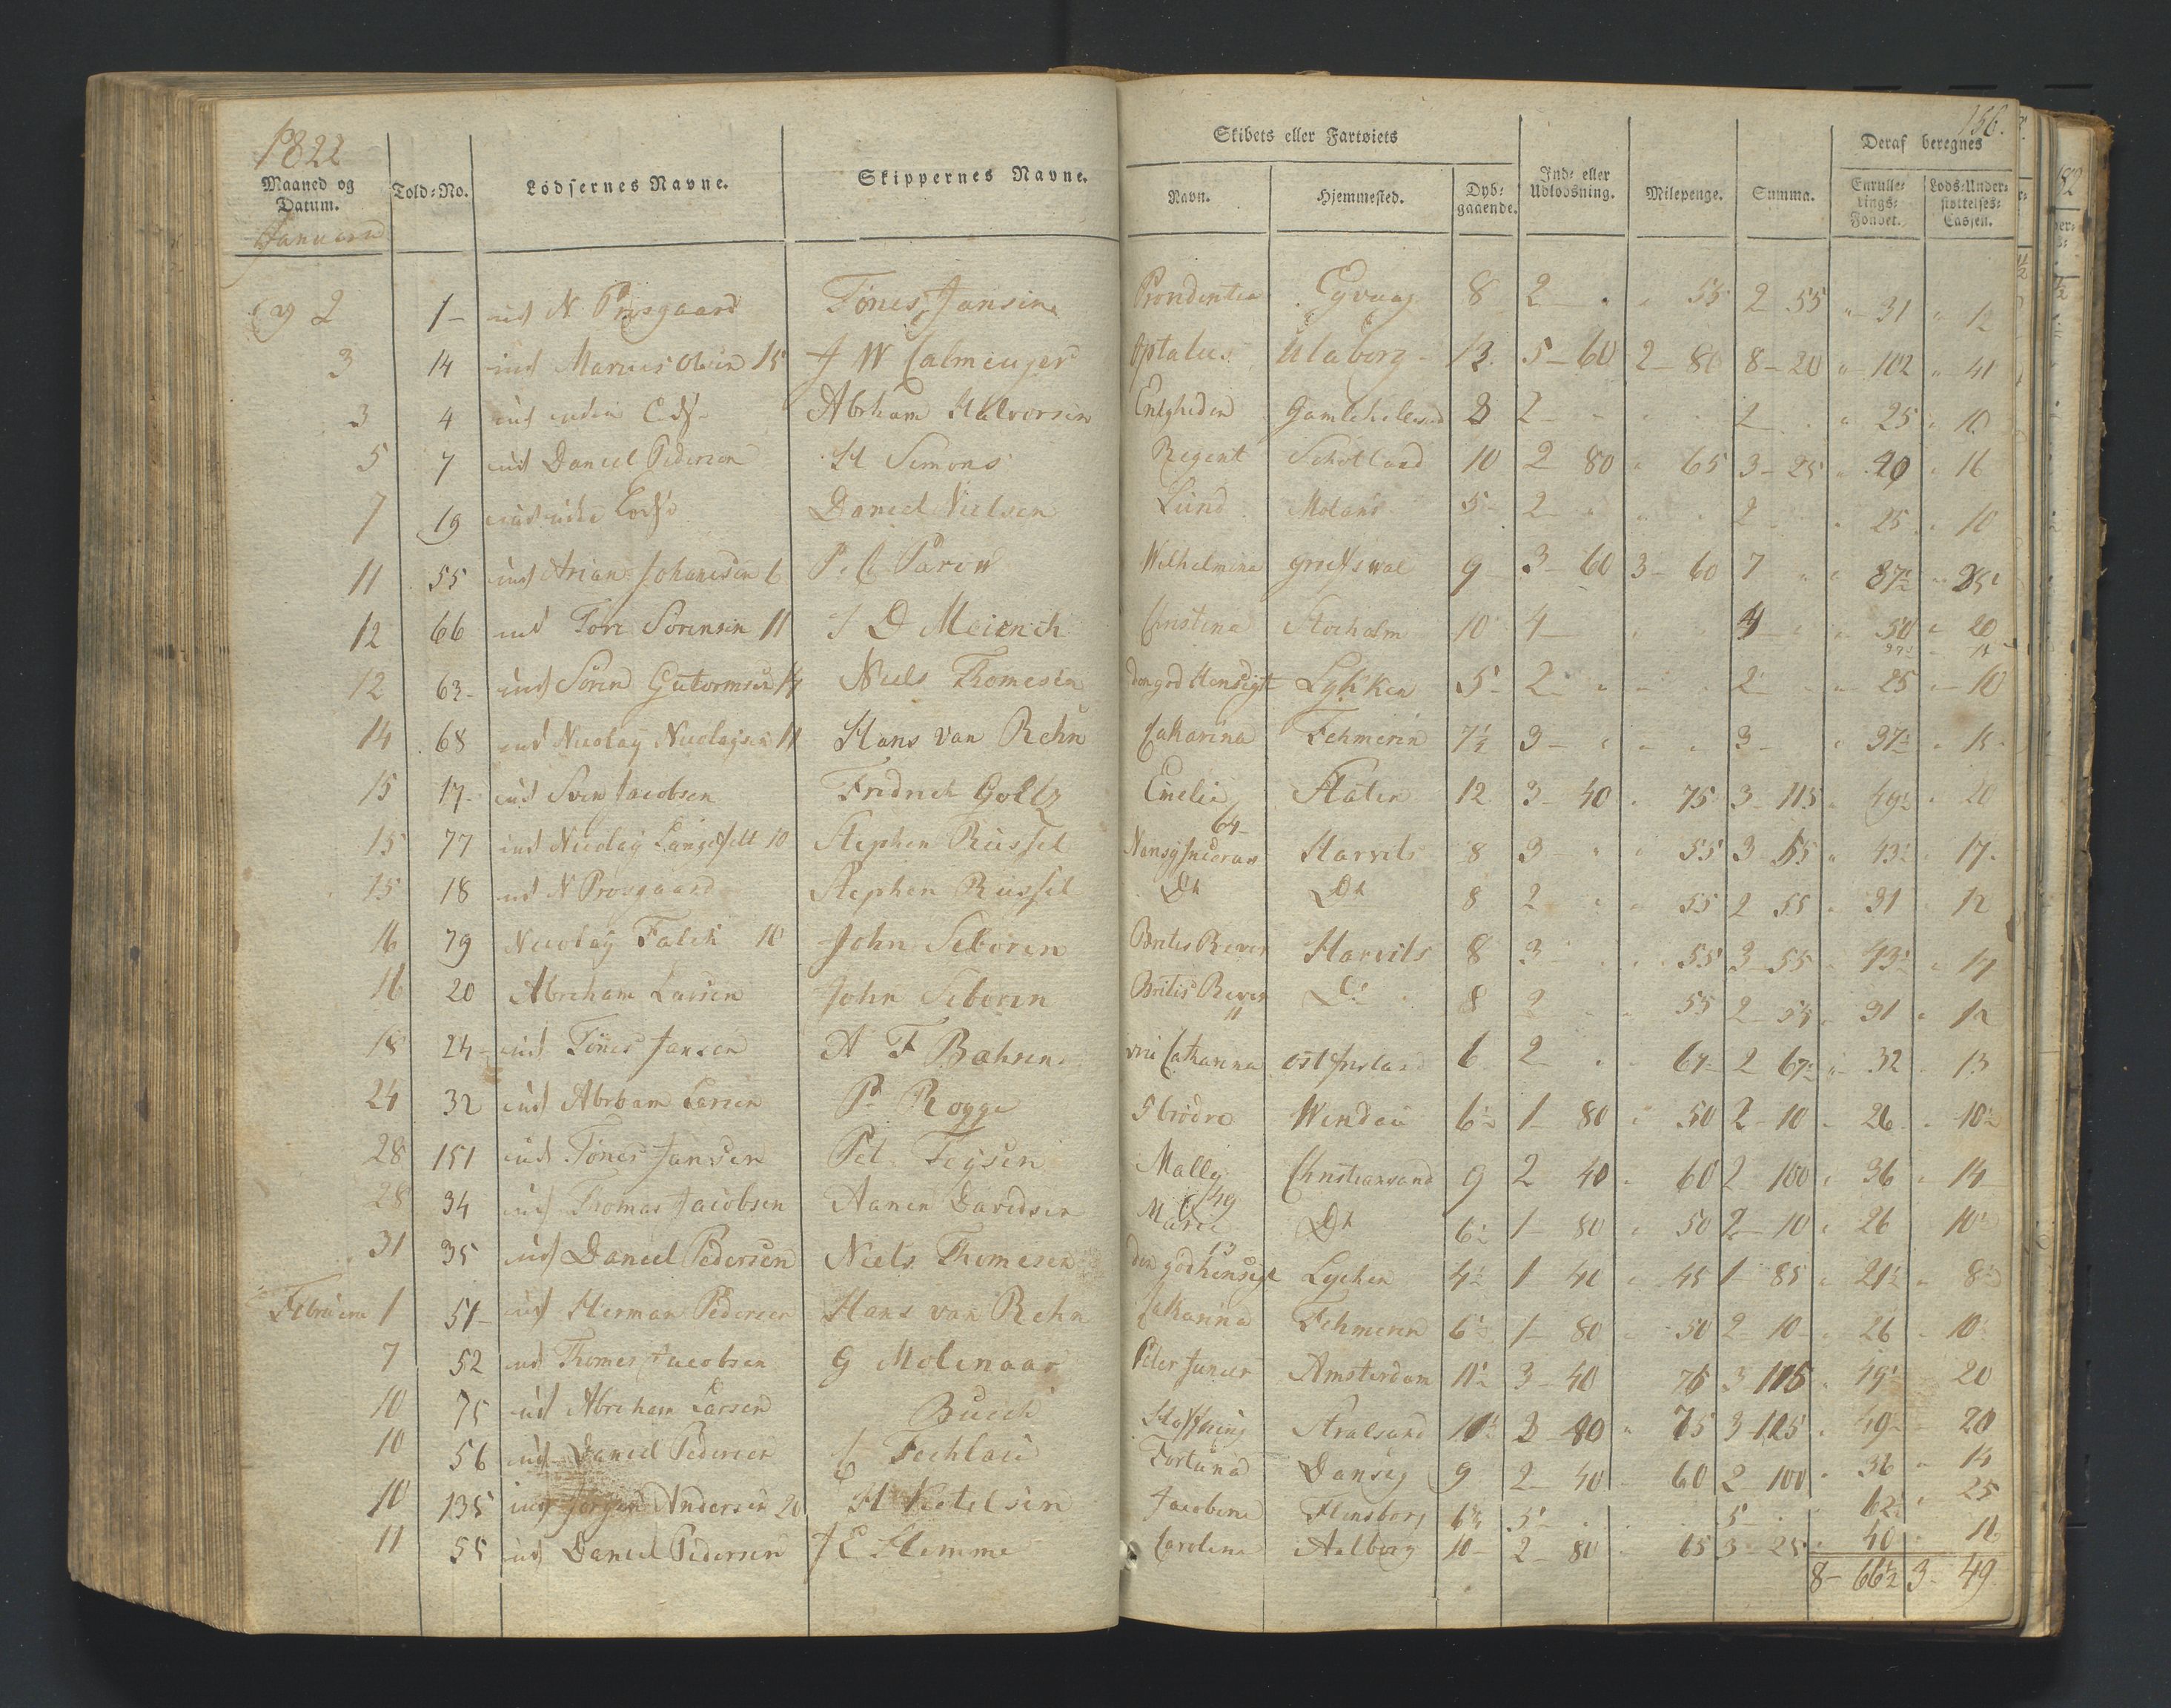 1822
156.
Skibets eller Fartøiets
Deraf beregnes
Maaned og Datum.
Told-No.
Lödsernes Navne.
Skippernes Navne.
Navn.
Hjemmested.
Dyb-gaaende.
Ind- eller Udlodsning.
Milepenge.
Summa.
Enrulle-rings-Fondet.
Lods-Under-støttelses-Cassen.
Januar
2 1 ud N Prosgaard Tönes Jansen Prondentia Eyvaag 8 2 " " 55 2 55 " 31 " 12
3 14 ind Marcus Olsen 15 J W Calmeyer Optatus Ulaborg 13 5 60 2 80 8 20 " 102 " 41
3 4 ud uden Abrham Halvorsen Enigheden Gamlehellesund 3 2 2 " 25 " 10
5 7 ud Daniel Pedersen H Simons Regent Schotland 10 2 80 " 65 3 25 " 40 " 16
7 19 ud uden Lods Daniel Nielsen Lund Moland 5 2 2 " 25 " 10
11 55 ind Arian Johanesen 6 P. C Parow Wilhelmina greifswal 9 3 60 3 60 7 " " 87½
12 66 ind Tore Sörensen 11 J D Meinch Christina Stocholm 10 4 4 " 50 " 20
12 63 ind Sören Gutormsen 14 Niels Thomesen den god Hensigt Lykken 5 2 2 25 10
14 68 ind Nicolay Nicolaysen 11 Hans van Rehn Catharina Fehmern 7½ 3 3 37½ 15
15 17 ud Sven Jacobsen Fredrich Goltz Emelie Staten 12 3 40 75 3 115 49½ 20
64
15 77 ind Nicolay Langefeldt 10 Stephen Russel Harvits 8 3 55 3 55 43½ 17
15 18 ud N Prosgaard Stephen Russel Do Do 8 2 55 2 55 31 12
16 79 Nicolay Falch 10 John Seboren Brites Rever Harvits 8 3 55 3 55 43½ 17
16 20 Abreham Larsen John Seboren Britis Rever Do 8 2 55 2 55 31 12
18 24 ud Tönes Jansen A F Bahsen Catharina ostfrisland 6 2 67 2 67 32 13
24 32 ud Abrham Larsen P. Rogge 5 brödre Wendau 6½ 1 80 50 2 10 26 10½
28 151 ud Tönes Jansen Pet. Feysen Mally Christiansand 9 2 40 60 2 100 36 14
149
28 34 ud Thomas Jacobsen Aanen Davidsen Marie Do 6½ 1 80 50 2 10 26 10½
31 35 ud Daniel Pedersen Niels Thomesen den god hensigt Lycken 4½ 1 40 45 1 85 21½ 8½
Februar 1 51 ud Herman Pedersen Hans van Rehn Catharina Fehmern 6½ 1 80 50 2 10 26 10½
7 52 ud Thomes Jacobsen G Molenaar Peter Junier Amsterdam 11½ 3 40 75 3 115 49½ 20
10 75 ud Abreham Larsen Bueck Hoffning Stralsund 11½ 3 40 75 3 115 49½ 20
10 56 ud Daniel Pedersen C Fechlau Fortuna Dansig 9 2 40 60 2 100 36 14
10 135 ind Jörgen Andersen 20 H Ketelsen Jacobine Flensborg 6½ 5 5 62½ 25
11 55 ud Daniel Pedersen J E Hemme Caroline Aalborg 10 2 80 65 3 25 40 16
8 66½ 3 49